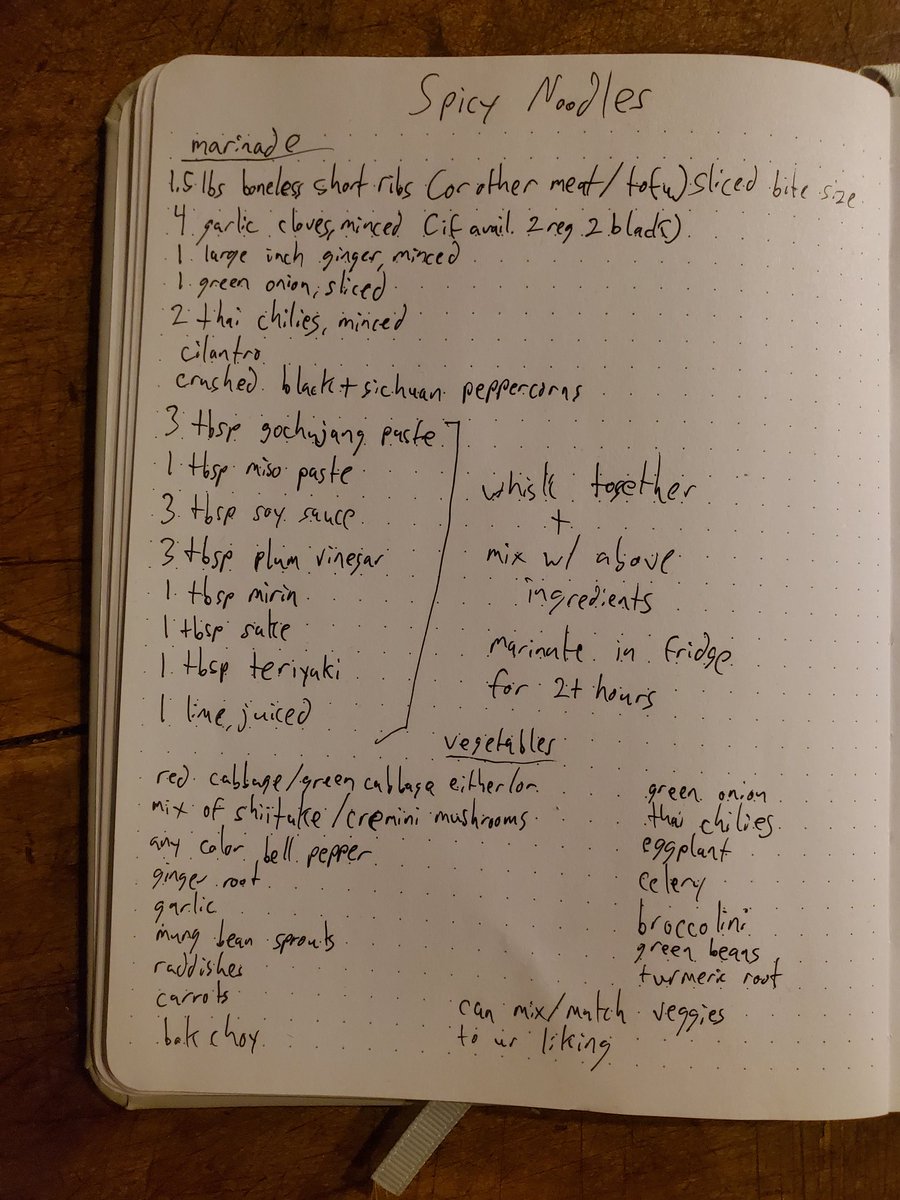 Spicy Noodles
marinade
1.5 lbs boneless short ribs (or other meat/tofu) sliced bite size
4 garlic cloves, minced (if avail. 2 reg 2 black)
1 large inch ginger, minced
1 green onion, sliced
2 thai chilies, minced
cilantro
crushed black + sichuan peppercorns
3 tbsp gochujang paste
1 tbsp miso paste
3 tbsp soy sauce
3 tbsp plum vinegar
1 tbsp mirin
1 tbsp sake
1 tbsp teriyaki
1 lime, juiced
whisk together
+
mix w/ above
ingredients
marinate in fridge
for 2+ hours
vegetables
red cabbage/green cabbage either/or
mix of shiitake/cremini mushrooms
any color bell pepper
ginger root
garlic
mung bean sprouts
raddishes
carrots
bok choy
green onion
thai chilies
eggplant
celery
broccolini
green beans
turmeric root
can mix/match veggies
to ur liking